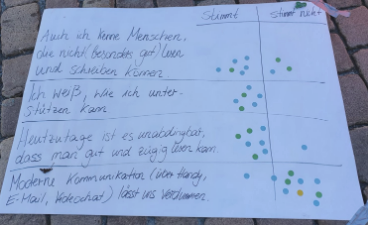 Stimmt stimmt nicht
Auch ich kenne Menschen,
die nicht (besonders gut) lesen
und schreiben können.
Ich weiß, wie ich unter-
stützen kann
Heutzutage ist es unabdingbar,
dass man gut und zügig lesen kann.
Moderne Kommunikation (über Handy,
E-Mail, Videochat) lässt uns verdummen.